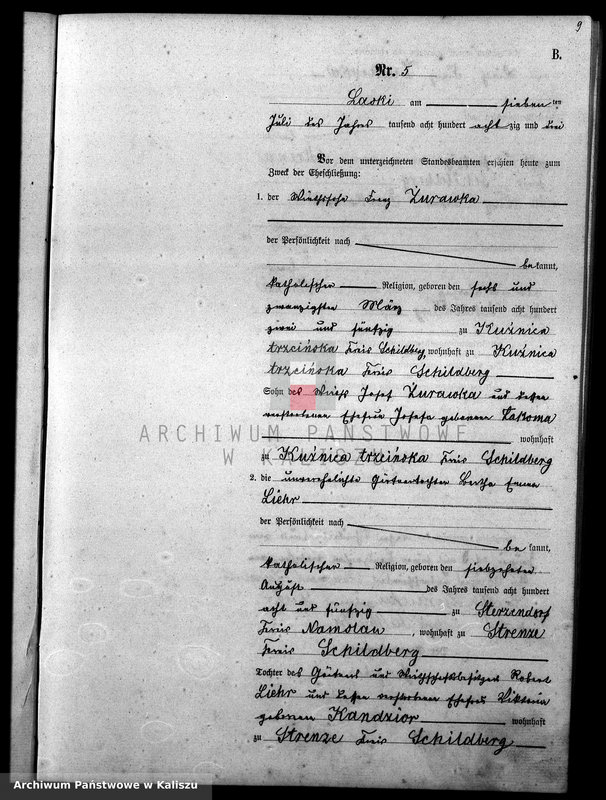 9
B.
Nr. 5
Laski am sieben ten
Juli des Jahres tausend acht hundert acht zig und drei
Vor dem unterzeichneten Standesbeamten erschien heute zum
Zweck der Eheschließung:
1. der Wirthssohn Franz Żurawka
der Persönlichkeit nach
be kannt,
katholischer Religion, geboren den sechs und
zwanzigsten März des Jahres tausend acht hundert
zwei und fünfzig zu Kuźnica
trzcińska Kreis Schildberg, wohnhaft zu Kuźnica
trzcińska Kreis Schildberg
Sohn des Wirths Josef Żurawka und dessen
verstorbenen Ehefrau Josefa geborenen Łakoma
wohnhaft
zu Kuźnica trzcińska Kreis Schildberg
2. die unverehelichte Gärtnertochter Bertha Emma
Liehr
der Persönlichkeit nach
be kannt,
katholischer Religion, geboren den siebzehnten
August des Jahres tausend acht hundert
acht und fünfzig zu Sterzendorf
Kreis Namslau, wohnhaft zu Strenze
Kreis Schildberg
Tochter des Gärtners und Wirthschaftsbesitzers Robert
Liehr und dessen verstorbenen Ehefrau Viktoria
geborenen Kandzior wohnhaft
zu Strenze Kreis Schildberg
ARCHIWUM PAŃSTWOWE
W KALISZU
Archiwum Państwowe w Kaliszu